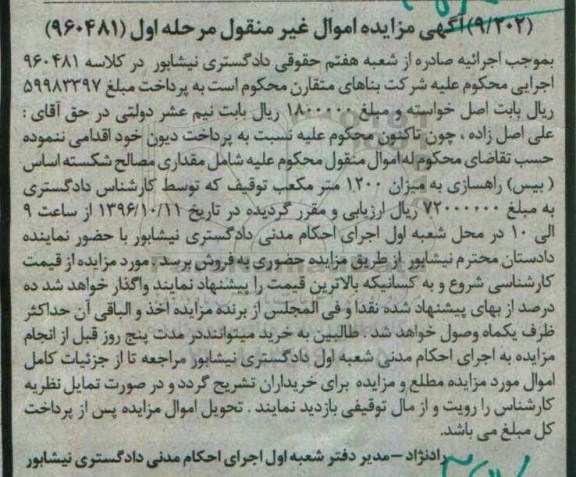 (۹/۲۰۲) آگهی مزایده اموال غیر منقول مرحله اول (۹۶۰۴۸۱)
بموجب اجرائیه صادره از شعبه هفتم حقوقی دادگستری نیشابور در کلاسه ۹۶۰۴۸۱
اجرایی محکوم علیه شرکت بناهای متقارن محکوم است به پرداخت مبلغ ۵۹۹۸۳۳۹۷
ریال بابت اصل خواسته و مبلغ ۱۸۰۰۰۰۰ ریال بابت نیم عشر دولتی در حق آقای :
علی اصل زاده ، چون تاکنون محکوم علیه نسبت به پرداخت دیون خود اقدامی ننموده
حسب تقاضای محکوم له اموال منقول محکوم علیه شامل مقداری مصالح شکسته اساس
( بیس) راهسازی به میزان ۱۲۰۰ متر مکعب توقیف که توسط کارشناس دادگستری
به مبلغ ۷۲۰۰۰۰۰۰ ریال ارزیابی و مقرر گردیده در تاریخ ۱۳۹۶/۱۰/۱۱ از ساعت ۹
الی ۱۰ در محل شعبه اول اجرای احکام مدنی دادگستری نیشابور با حضور نماینده
دادستان محترم نیشابور از طریق مزایده حضوری به فروش برسد . مورد مزایده از قیمت
کارشناسی شروع و به کسانیکه بالاترین قیمت را پیشنهاد نمایند واگذار خواهد شد ده
درصد از بهای پیشنهاد شده نقدا و فی المجلس از برنده مزایده اخذ و الباقی آن حداکثر
ظرف یکماه وصول خواهد شد . طالبین به خرید میتوانند در مدت پنج روز قبل از انجام
مزایده به اجرای احکام مدنی شعبه اول دادگستری نیشابور مراجعه تا از جزئیات کامل
اموال مورد مزایده مطلع و مزایده برای خریداران تشریح گردد و در صورت تمایل نظریه
کارشناس را رویت و از مال توقیفی بازدید نمایند . تحویل اموال مزایده پس از پرداخت
کل مبلغ می باشد.
رادنژاد – مدیر دفتر شعبه اول اجرای احکام مدنی دادگستری نیشابور